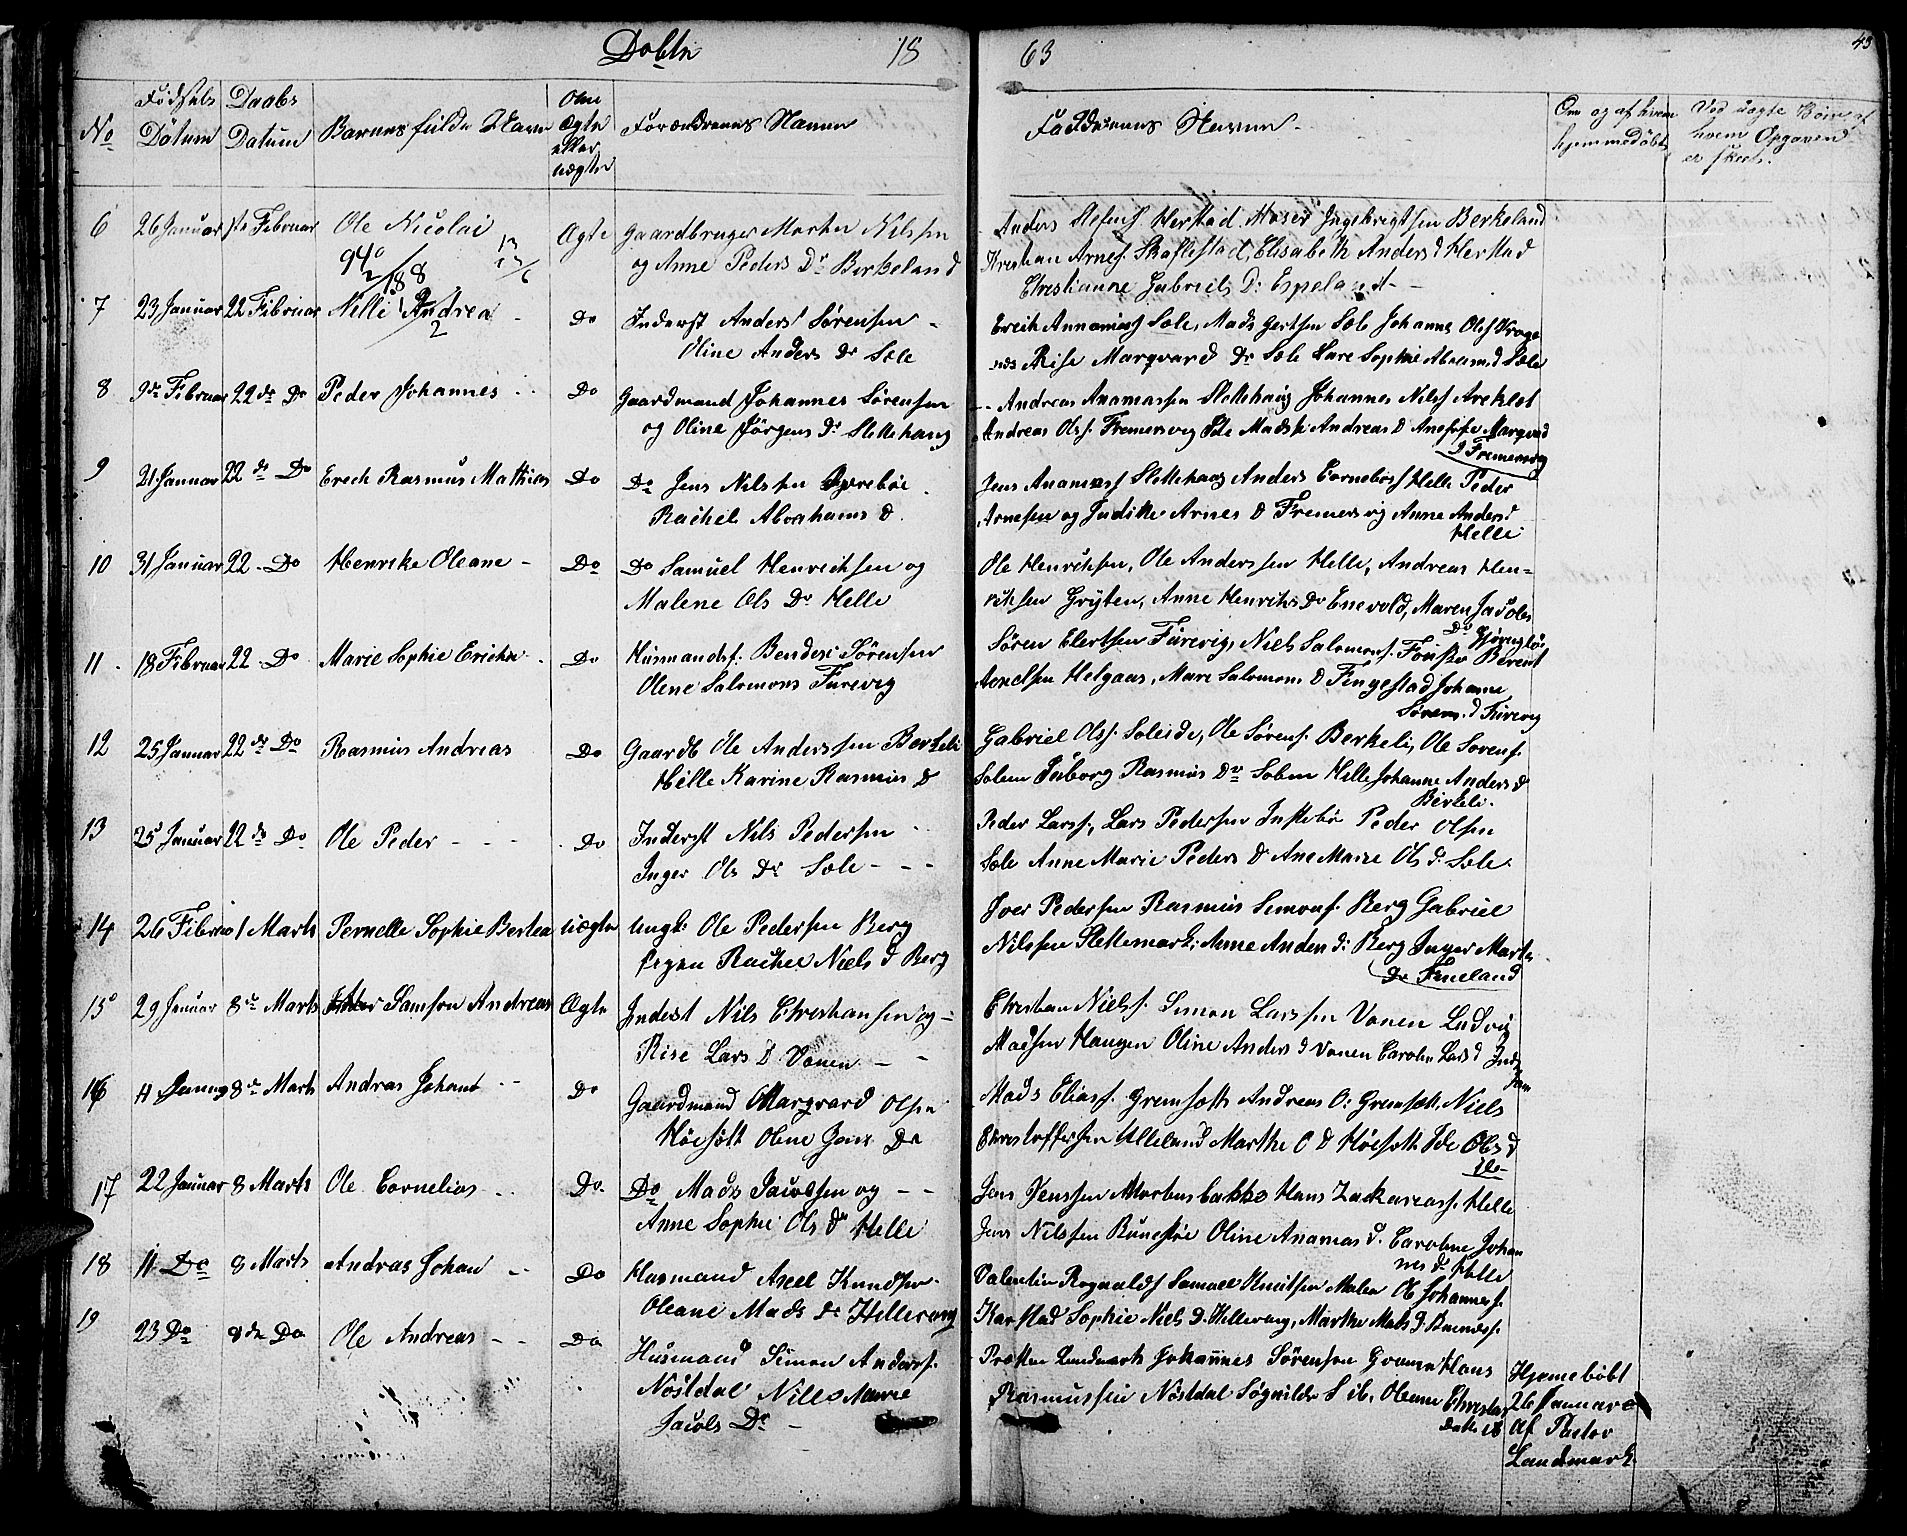 Döbte 18 63 43
No Födsels Datum Daabs Datum Barnets fulde Navn Om Ægte eller uægte Forældrenes Navne Faddernes Navne Om og af hvem hjemmedöbt Ved uægte Börn af hvem Opgaven er skeet.
6 26 Januar 1ste Februar Ole Nicolai Ægte Gaardbruger Morten Nilssen
og Anne Peders Dr Berkeland
Anders Stefens. Herstad. Moses Ingebrigtsen Berkeland
Kristian Arnes. Skaflestad, Elisabeth Anders d Herstad
Christianne Gabriels D. Espeland
940
2/188
7 23 Januar 22 Februar Nilli Andrea Do Inderst Anders Sörensen
Oline Anders Dr Sæle
Erich Annanias Sæle, Mads Gertsen Sæle Johannes Ols
Rise Marqvard Dr Sæle Kare Sophie Abram d Sæle
8 9de Februar 22de Do Peder Johannes Do Gaardmand Johannes Sörensen
og Oline Jörgens Dr Slettehaug
Andreas Anamassen Slettehaug Johannes Nils Areklet
Andreas Olss. Fremersvig Ide Mads Andreas D Marqvad
D Fremersvig
9 21 Januar 22de Do Erech Rasmus Mathias Do Do Jens Nilssen
Rachel Abrahams D.
Jens Anamas Slettehaug Anders Cornelius Helle Peder
Arnesen og Judike Arnes D Fremersvig Anne Anders d
Helle
10 31 Januar 22 Do Henrike Oleane Do Do Samuel Henrichsen og
Malene Ols Dr Helle
Ole Henriksen, Ole Anderssen Helle, Andreas Hen-
richsen Gryten, Anne Henriks Dr Enevold, Maren Jacobs
Do
11 18 Februar 22 Do Marie Sophie Do Husmands. Bendix Sörensen
Olene Salomons Furevig
Sören Elertsen Furevig, Niels Salomons. Berent
Helgaas, Mare Salomons D Fingestad Johanne
Sörens. d Furevig
12 25 Januar 22de Do Rasmus Andreas Do Gaardb Ole Anderssen Berkeli
Helle Karine Rasmus D
Gabriel Olss. Soleide, Ole Sörens. Berkeli, Ole Sorens.
Solem Inborg Rasmus Dr Solem Helle Johanne Anders D
Berkeli.
13 25 Januar 22de Do Ole Peder Do Inderst Nils Pedersen
Inger Ols Dr Sole
Peder Larss., Lars Pedersen Instebö Peder Olsen
Sæle Anne Marie Peders D Ane Marie Ols D. Sæle.
14 26 Febru 1 Marts Pernelle Sophie Bertea uægte Ungk. Ole Pedersen Berg
Pigen Rachel Niels D Berg
Iver Pedersen Rasmus Simons. Berg Gabriel
Nilssen Slettemark. Anne Anders D. Berg Inger Martn
Dr
15 29 Januar 8de Marts Samson Andreas Ægte Inderst Nils Christiansen og
Rise Lars D Vonen
Christian Niels. Simon Larssen Vonen Ludvig
Madsen Haugen Oline Anders d Vonen Caroline Lars d
16 11 Januar 8de Marts Andras Johant Do Gaardmand Marqvard Olsen
Höesött Oline Jens Dr
Mads Eliass. Gremsött Andreas O. Gremsött, Niels
Christoffersen Ulleland Marthe O D Höesött Ide Ols d
Do
17 22 Januar 8 Marts Ole Cornelius Do Do Mads Jacobsen og
Anne Sophie Ols Dr Helle
Jens Jenssen Hans Zackariass. Helle
Jens Nilssen Oline Anamas d. Caroline Johan
nes d Helle
18 11 Do 8 Marts Andras Johan Do Husmand Axel Knudsen
Oleane Mads Dr Hellevang
Valentin Rognalds Samuel Knutsen Malen Ol Johannes.
Karstad Sophie Niels D. Hellevang, Marthe Mads D.
19 23 Do 8de Do Ole Andreas Do Husmand Simon Anders.
Nöstdal Nille Marie
Jacobs Dr
Præsten Landmark Johannes Sörenson Hans
Rasmussen Nöstdal ib, Oleane
Hjemeböbt
26 Januar
Af Pastor
Landmark